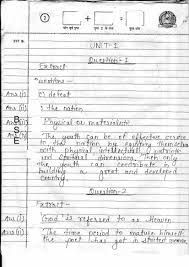 3
+
=
प्रश्न क्र.
UNIT-I
Question-1
Extract-
Ans (i) defeat
Ans (ii) the nation
Ans (iii) Physical or materialistic
Ans (iv) The youth can be of effective service
to the nation by equipping themselves
with physical, intellectual, patriotic
and spiritual dimension. Then only
the youth can contribute in
building a great and developed
country.
BSE
Question-2
Extract-
Ans (i) God is referred to as Heaven
Ans (ii) The time period to mature himself
the poet has got in